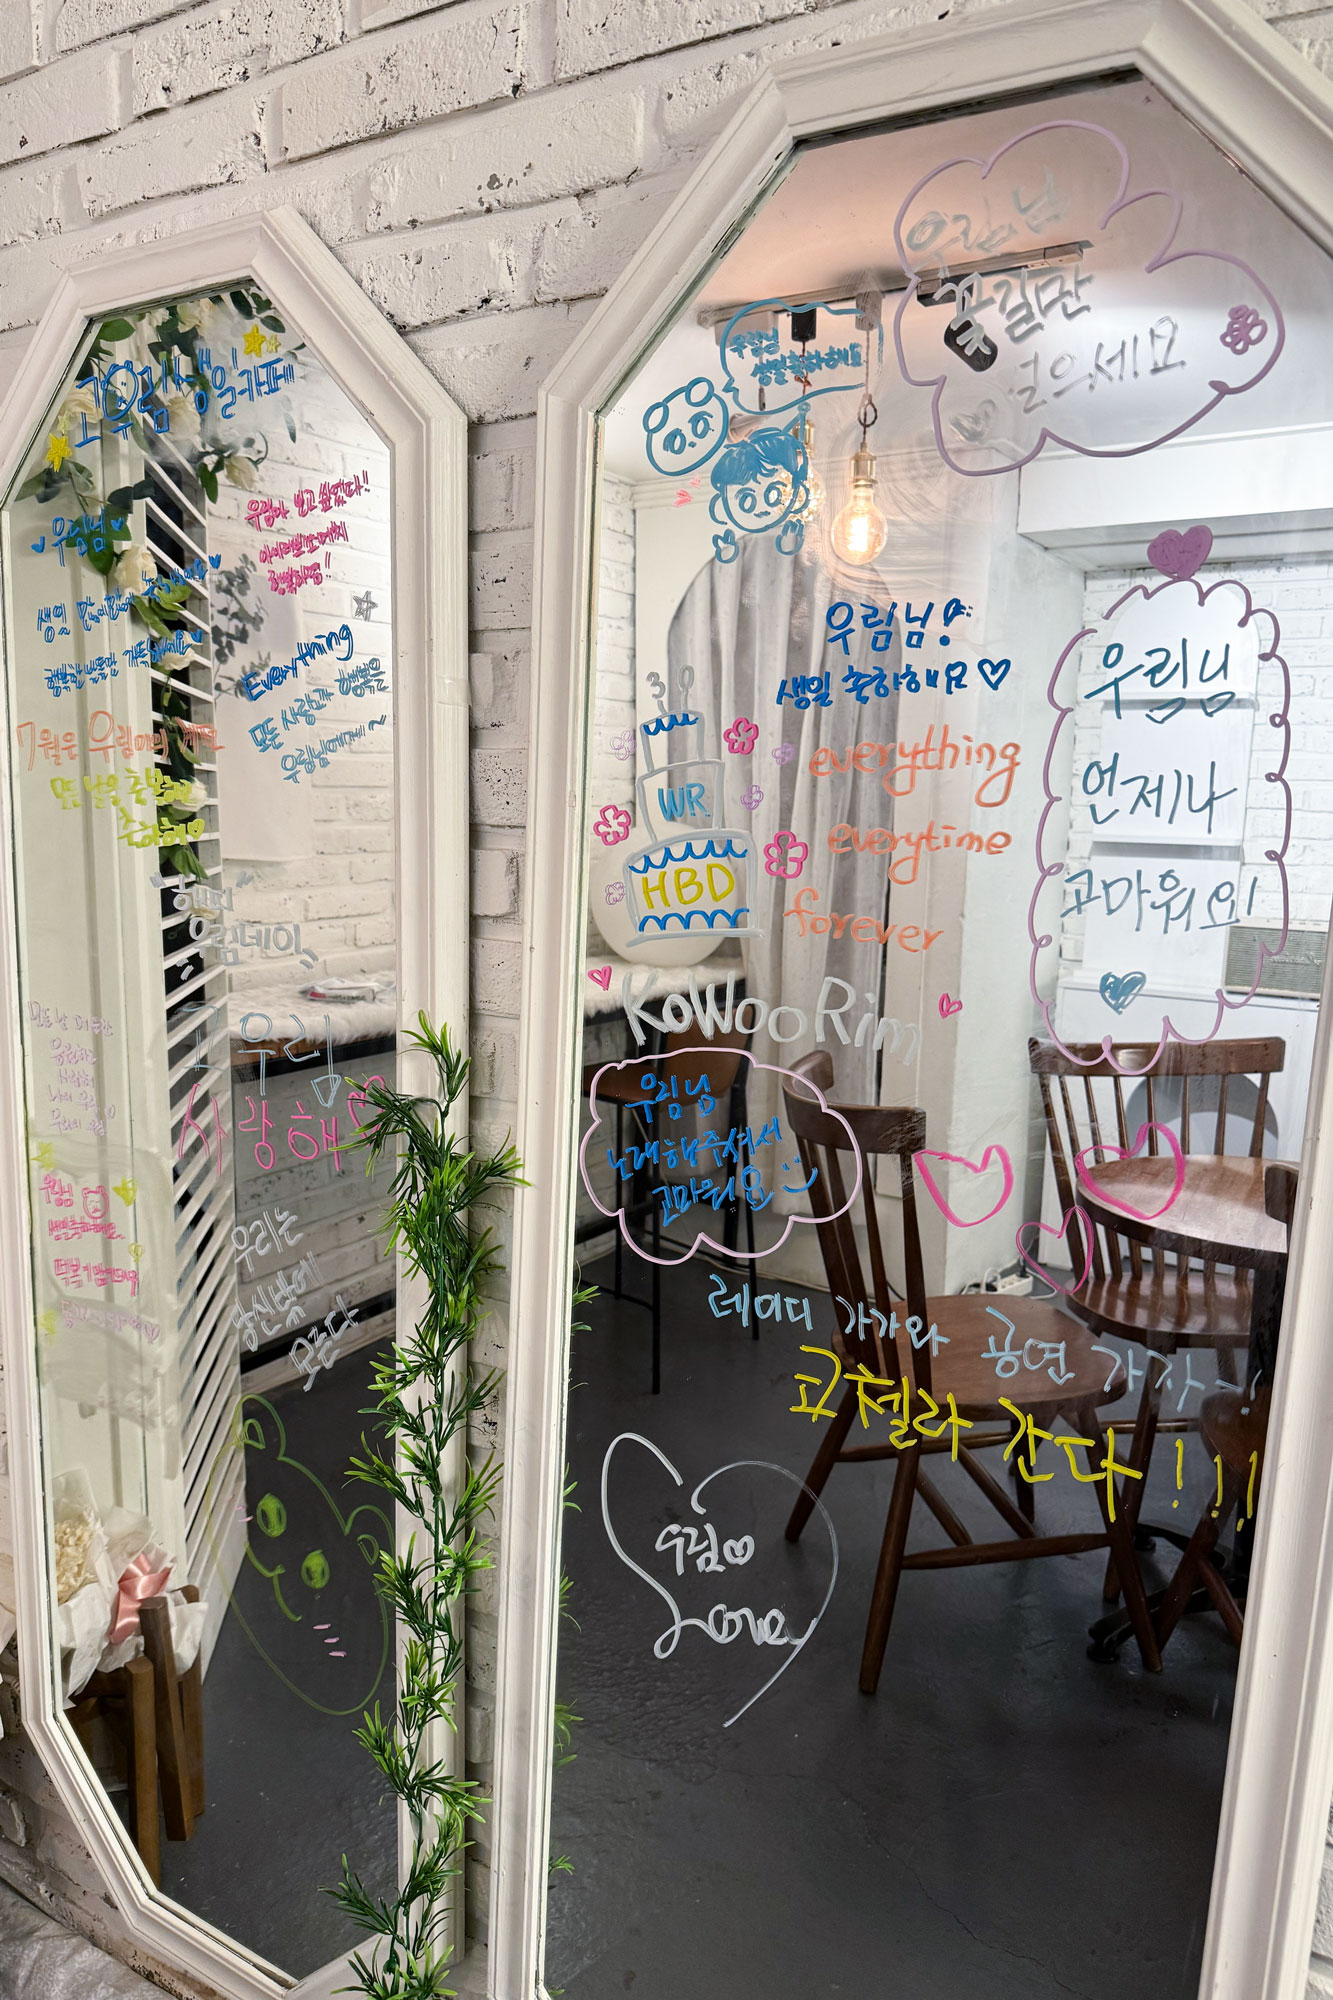 고우림 생일카페
우림님
생일
축하해요
우림아 보고 싶었다!!
Everything
모든 사랑과 행복을
우림님에게~
7월은 우림이의 계절
모든 날을 축복해
축하해
해피
우림데이
고우림
사랑해
우림님
생일축하해요
우리는
당신밖에
모른다
우림님
꽃길만
걸으세요
우림님
생일축하해요
우림님
생일 축하해요
30
WR
HBD
everything
everytime
forever
KoWooRim
우림님
언제나
고마워요!
우림님
노래해주셔서
고마워요
레이디 가가와 공연 가자~!
코첼라 간다!!!
우림
Love